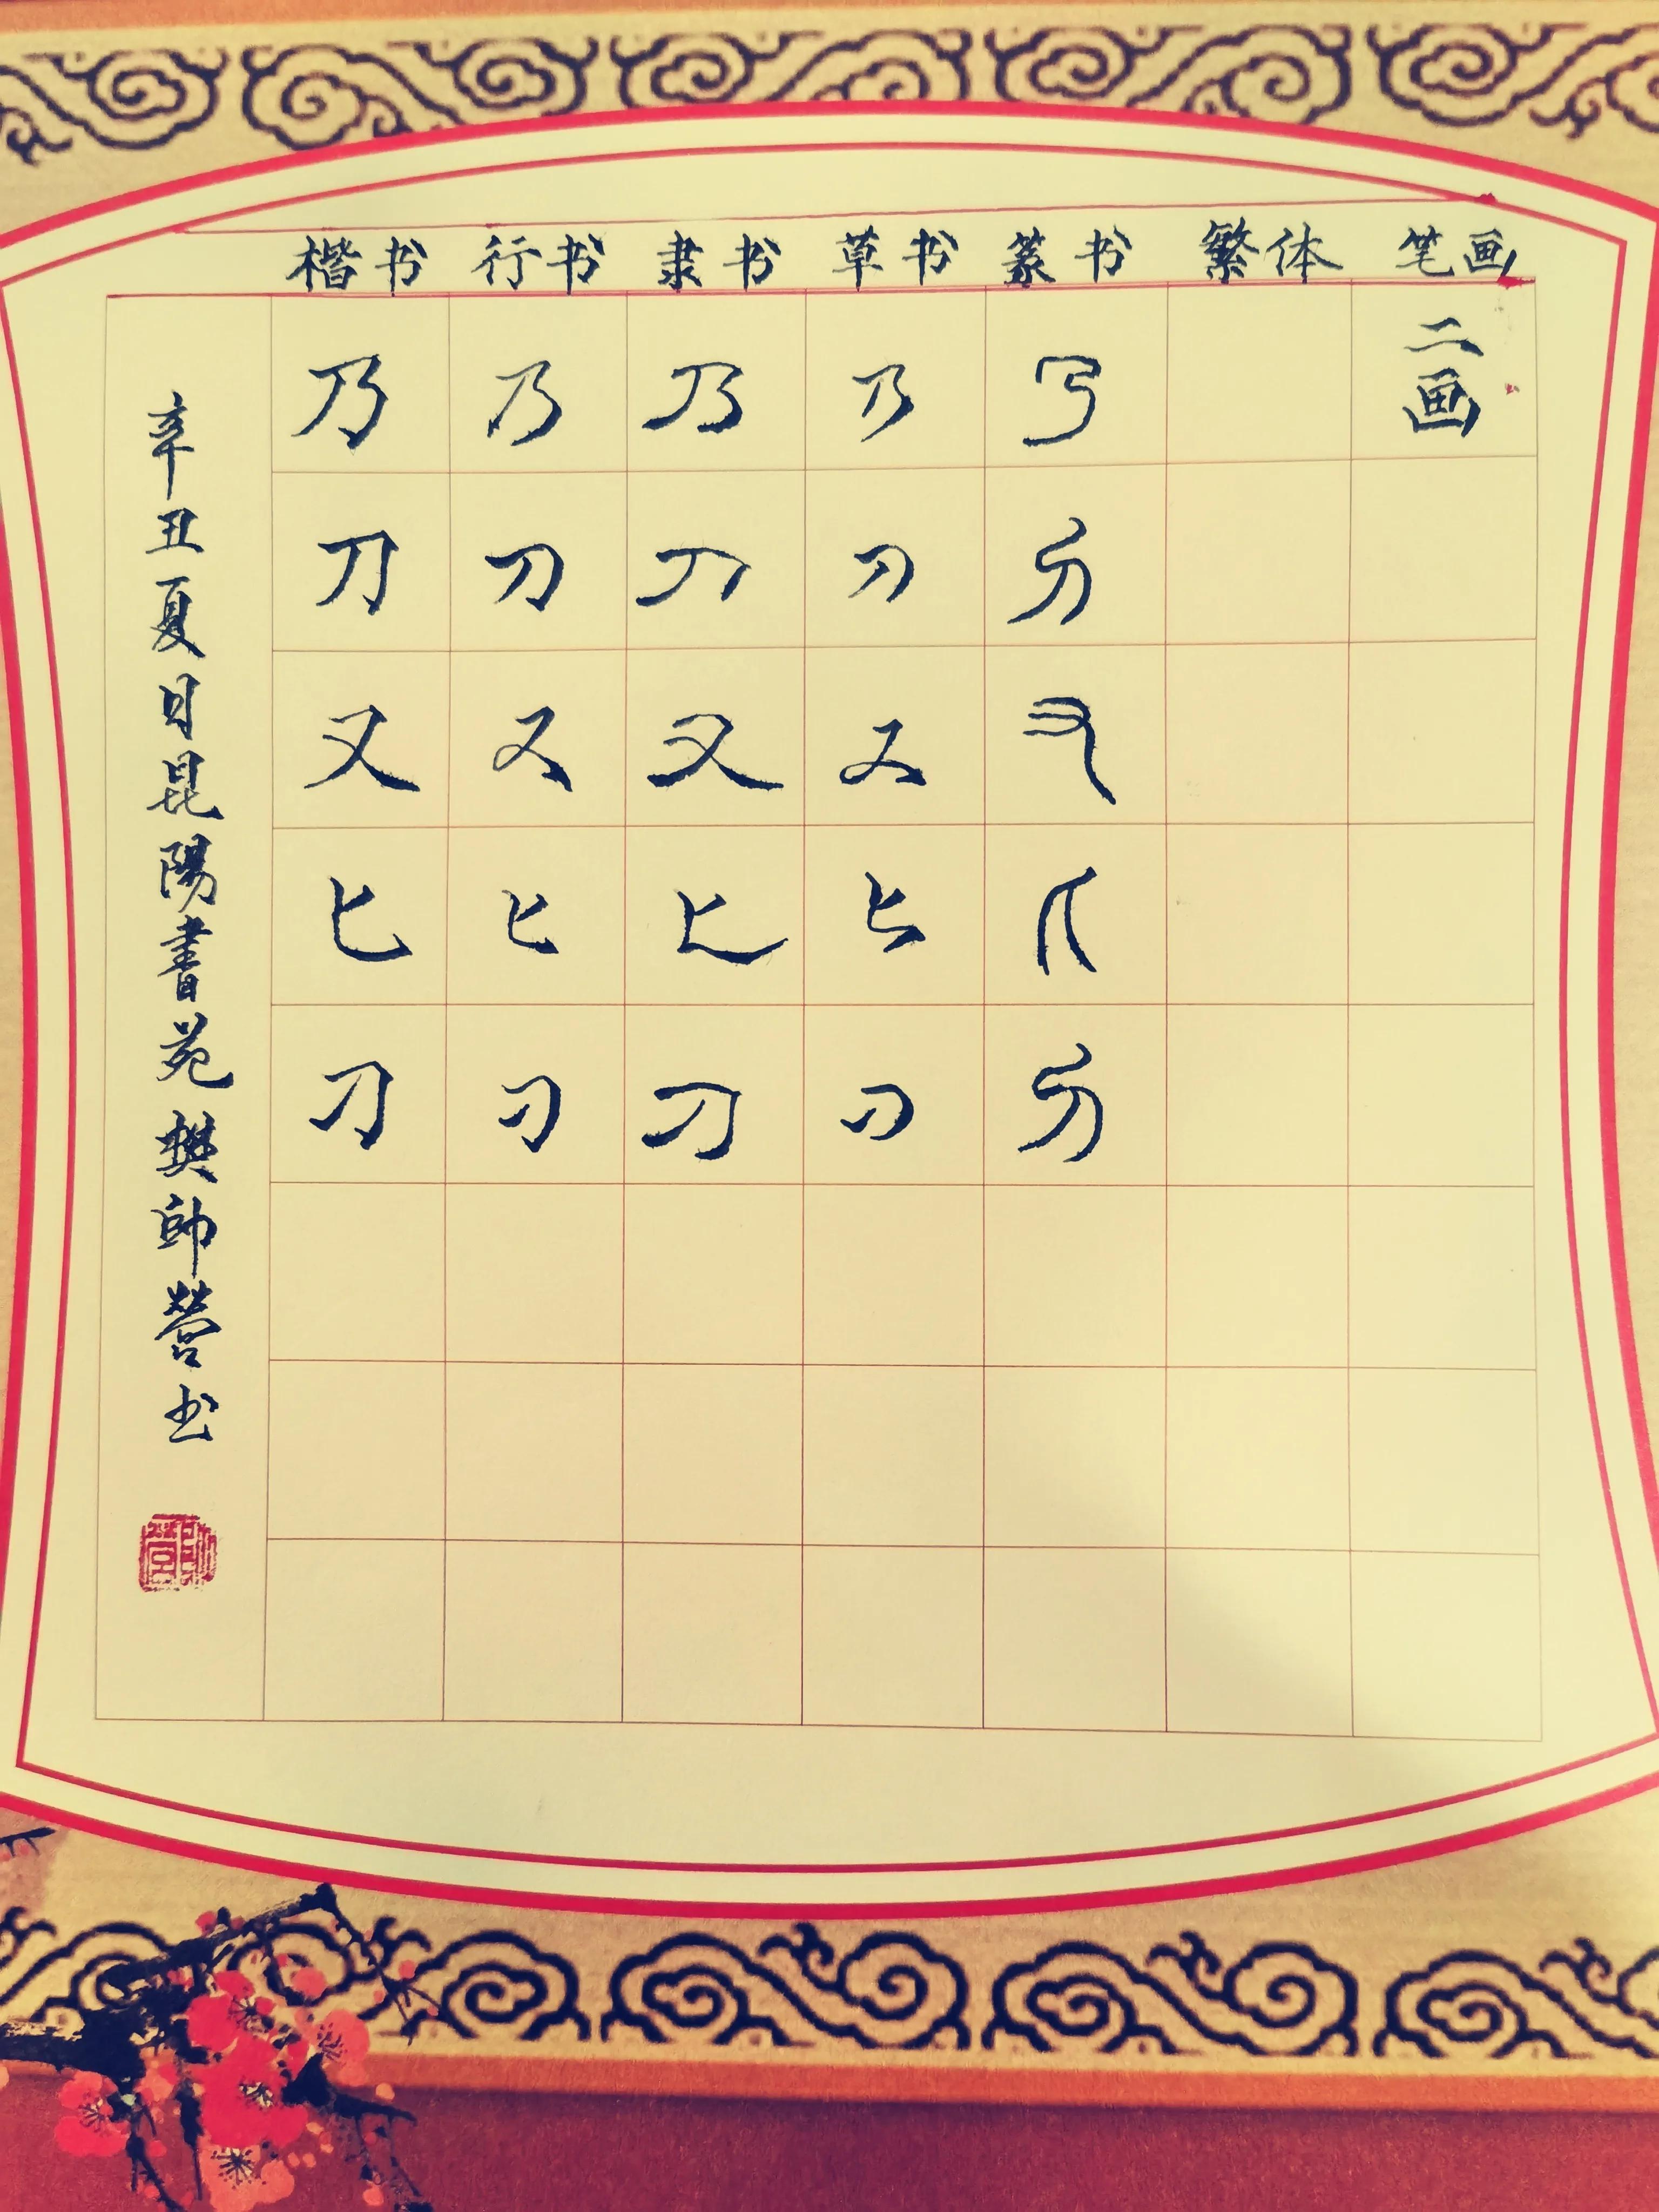 楷书 行书 隶书 草书 篆书 繁体 笔画
乃 乃 乃 乃 乃 二画
刀 刀 刀 刀 刀
又 又 又 又 又
匕 匕 匕 匕 匕
刁 刁 刁 刁 刁
辛丑夏月昆陽書苑樊帥營书